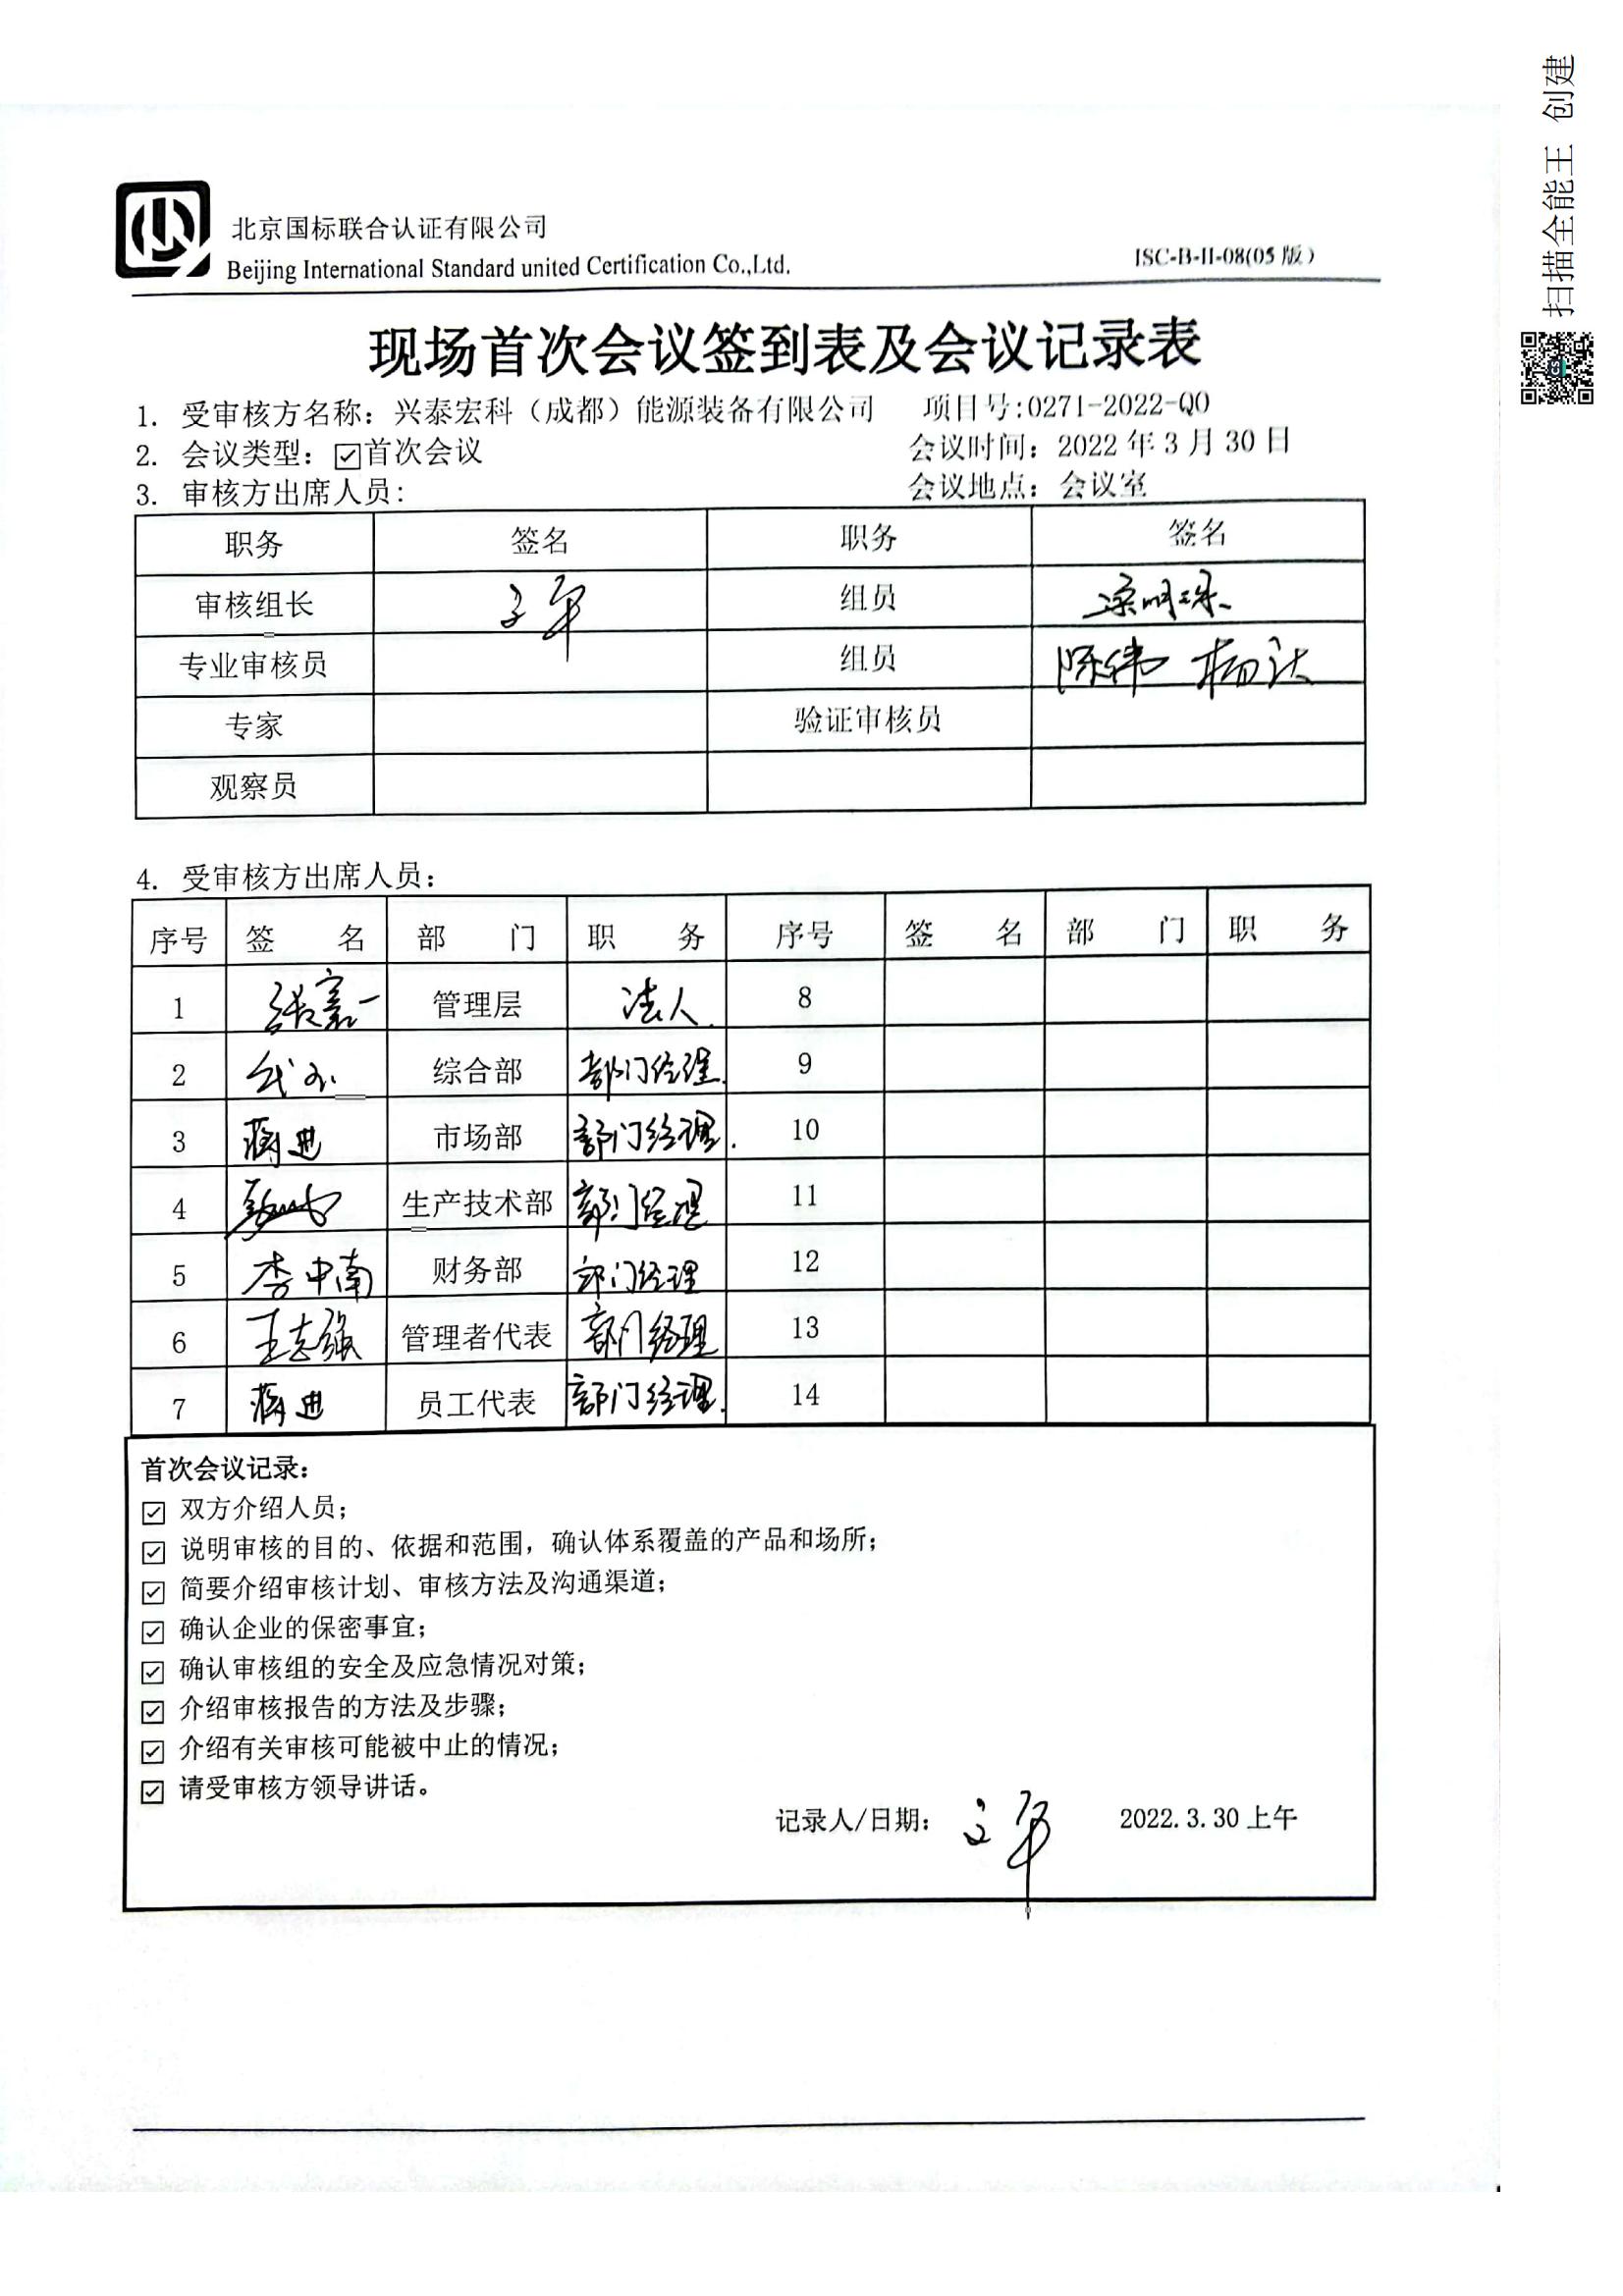 扫描全能王 创建
北京国标联合认证有限公司
Beijing International Standard united Certification Co.,Ltd.
ISC-B-II-08(05 版)
现场首次会议签到表及会议记录表
1. 受审核方名称：兴泰宏科（成都）能源装备有限公司 项目号:0271-2022-QO
2. 会议类型：☑首次会议 会议时间：2022 年 3 月 30 日
3. 审核方出席人员： 会议地点：会议室
职务 签名 职务 签名
审核组长 文平 组员 梁明珠
专业审核员 组员 陈伟 杨达
专家 验证审核员
观察员
4. 受审核方出席人员：
序号 签 名 部 门 职 务 序号 签 名 部 门 职 务
1 张嘉一 管理层 法人 8
2 综合部 部门经理 9
3 蒋进 市场部 部门经理 10
4 生产技术部 部门经理 11
5 李中南 财务部 部门经理 12
6 王志强 管理者代表 部门经理 13
7 蒋进 员工代表 部门经理 14
首次会议记录：
☑ 双方介绍人员；
☑ 说明审核的目的、依据和范围，确认体系覆盖的产品和场所；
☑ 简要介绍审核计划、审核方法及沟通渠道；
☑ 确认企业的保密事宜；
☑ 确认审核组的安全及应急情况对策；
☑ 介绍审核报告的方法及步骤；
☑ 介绍有关审核可能被中止的情况；
☑ 请受审核方领导讲话。
记录人/日期： 文平 2022.3.30 上午